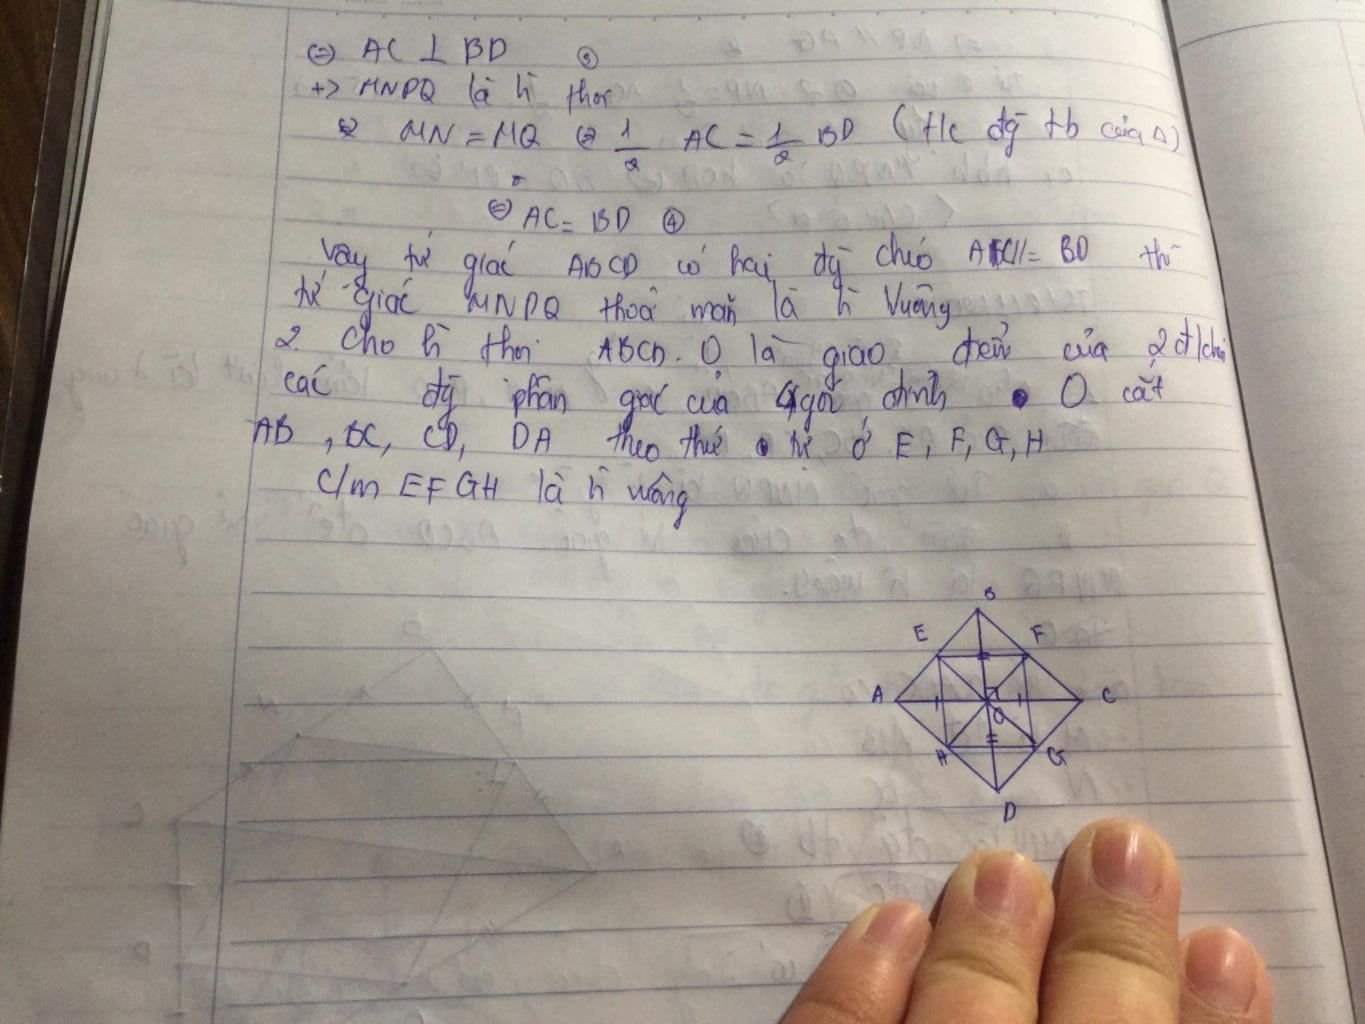 ⇔ AC ⊥ BD ③
+> MNPQ là h̀ thoi
⇔ MN = MQ ⇔ 1/2 AC = 1/2 BD (t/c đg̀ tb của Δ)
⇔ AC = BD ④
Vậy tứ giác ABCD có hai đg̀ chéo AC = BD thì
tứ giác MNPQ thoả mãn là h̀ vuông
2. Cho h̀ thoi ABCD. O là giao điểm của 2 đ/chéo
các đg̀ phân giác của 4 góc đỉnh O cắt
AB, BC, CD, DA theo thứ tự ở E, F, G, H
C/m EFGH là h̀ vuông
B
E F
A C
O
H G
D